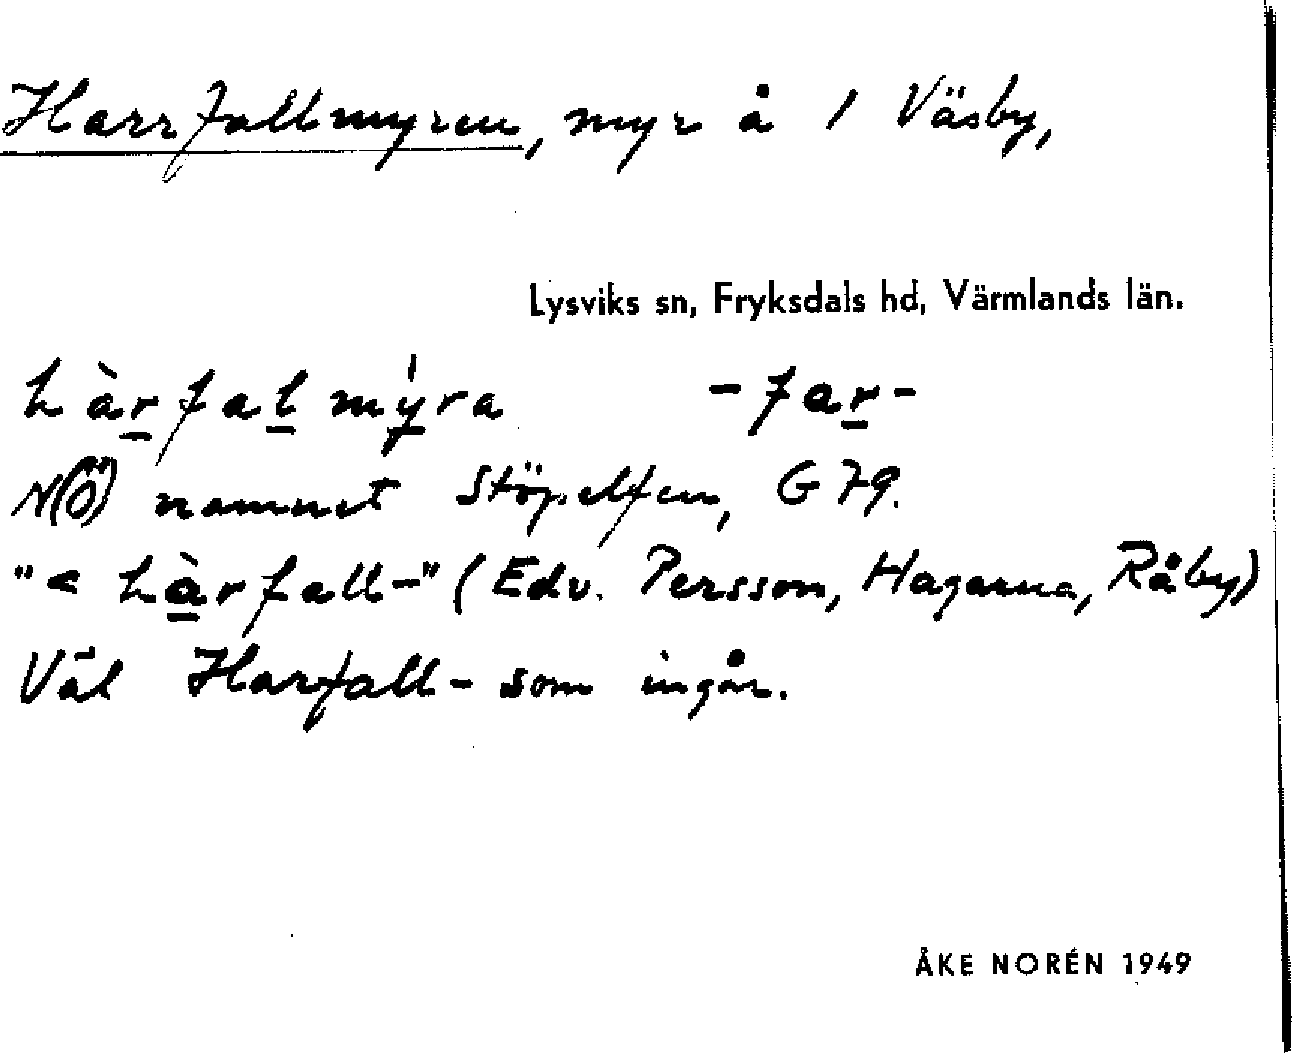 Harrfallmyren, myr å 1 Väsby,
Lysviks sn, Fryksdals hd, Värmlands län.
hàrfalmy̍ra -far-
N(Ö) namnet Stöpelfen, G 79.
"< hàrfall-" (Edv. Persson, Hagarna, Råby)
Väl Harfall- som ingår.
ÅKE NORÉN 1949